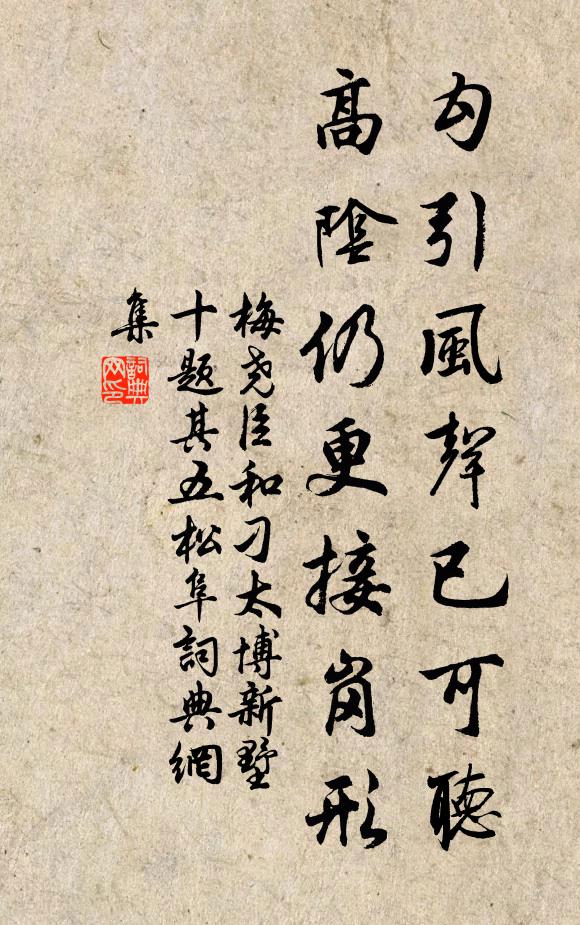 勾引風聲已可聽
高陰仍更接崗形
梅堯臣和刁太博新墅
十題其五松阜詞典網
集
詞典
网印